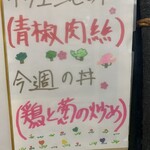 (青椒肉絲)
今週の丼
(鶏と葱の炒め)